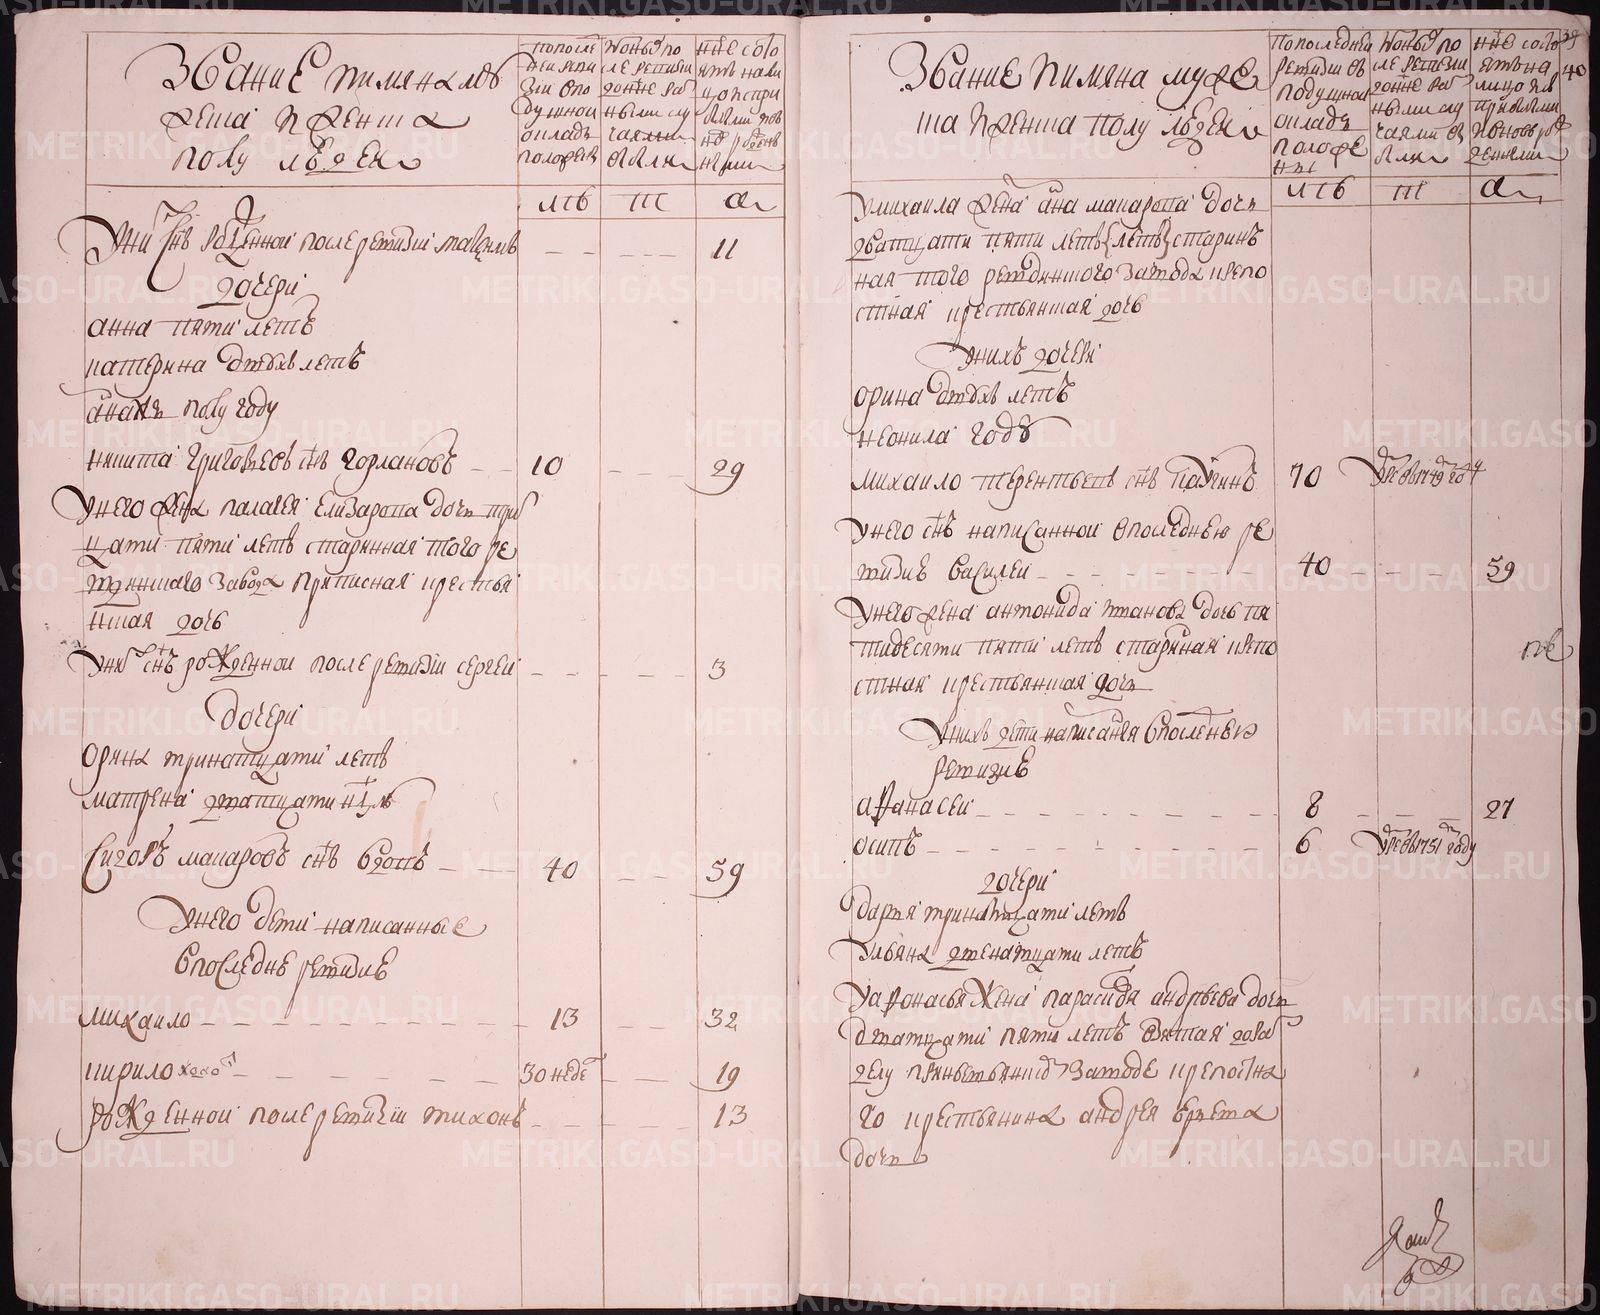 Звание и имяна муже
ска и женска
полу людеи
По после
днеи реви
зии в по
душной
окладъ
положен
Из оныхъ по
сле ревизии
разными слу
чаями
выбыло
ннѣ состо
ятъ на ли
цо
м
и
л
У них снъ рожденной после ревизии Максимъ 11
дочери
анна пяти летъ
катерина двухъ летъ
полу году
никита Григорьевъ снъ Горлановъ 10 29
У него жена палагея Елизарова дочь три
цати пяти летъ старинная того ре
вдинского завода приписная крестья
нская дочь
У них снъ рожденной после ревизии сергеи 3
дочери
орина тринатцати летъ
матрена
Сидоръ макаровъ снъ 40 59
У него дети написанные
в последне ревизие
михаило 13 32
кирило холостъ 30 неде 19
рожденной после ревизии тихонъ 13
Звание и имяна муже
ска и женска полу людеи
По последнеи
ревизии въ
подушной
окладъ
положе
ны
Из оныхъ по
сле ревизии
разными слу
чаями вы
было
ннѣ состо
ятъ на
лицо
39
40
м
и
л
У михаила жена ана макарова дочь
дватцати пяти летъ {летъ} старин
ная того ревдинского завода крепо
стная крестьянская дочь
У нихъ дочери
орина двухъ летъ
неонила году
михаило терентьевъ снъ 70 умре в 1749 году
У него снъ написанной в последнею ре
визие василеи 40 59
У него жена антонида иванова дочь пя
тидесяти пяти летъ старинная крепо
стная крестьянская дочь
У нихъ дети написания в последнею
ревизие
афанасеи 8 27
осипъ 6 умре в 1751 году
дочери
дарья тринатцати летъ
Ульяна двенатцати летъ
У афонасья жена парасковья андреева дочь
дватцати пяти летъ взятая
заводе крепостна
го крестьянина андрея
дочь